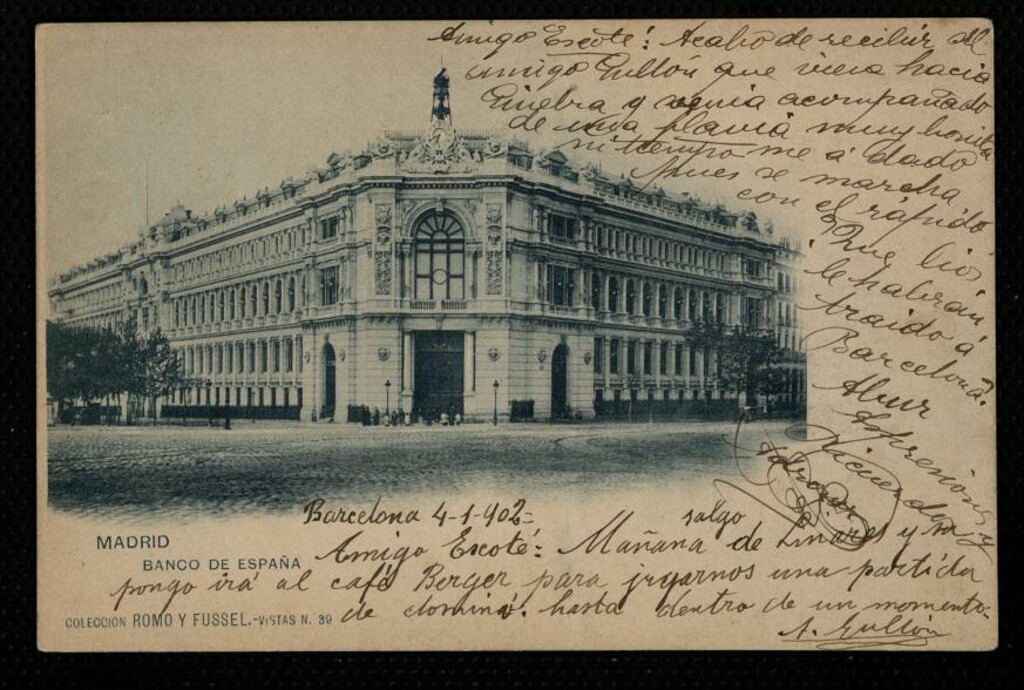 Amigo Escoté: Acabo de recibir al
amigo Gullón que viene hacia
Ginebra y venia acompañado
de una flavia muy bonita
ni tiempo me á dado
Pues se marcha
con el rápido
Que lios
le habrán
traido á
Barcelona?
Abur
Vicuende
Barcelona 4-1-902=
salgo
Amigo Escoté: Mañana de Linares y su
pongo irá al café Berger para jugarnos una partida
de dominó. hasta dentro de un momento-
A. Gullón
MADRID
BANCO DE ESPAÑA
COLECCIÓN ROMO Y FUSSEL.-VISTAS N. 39